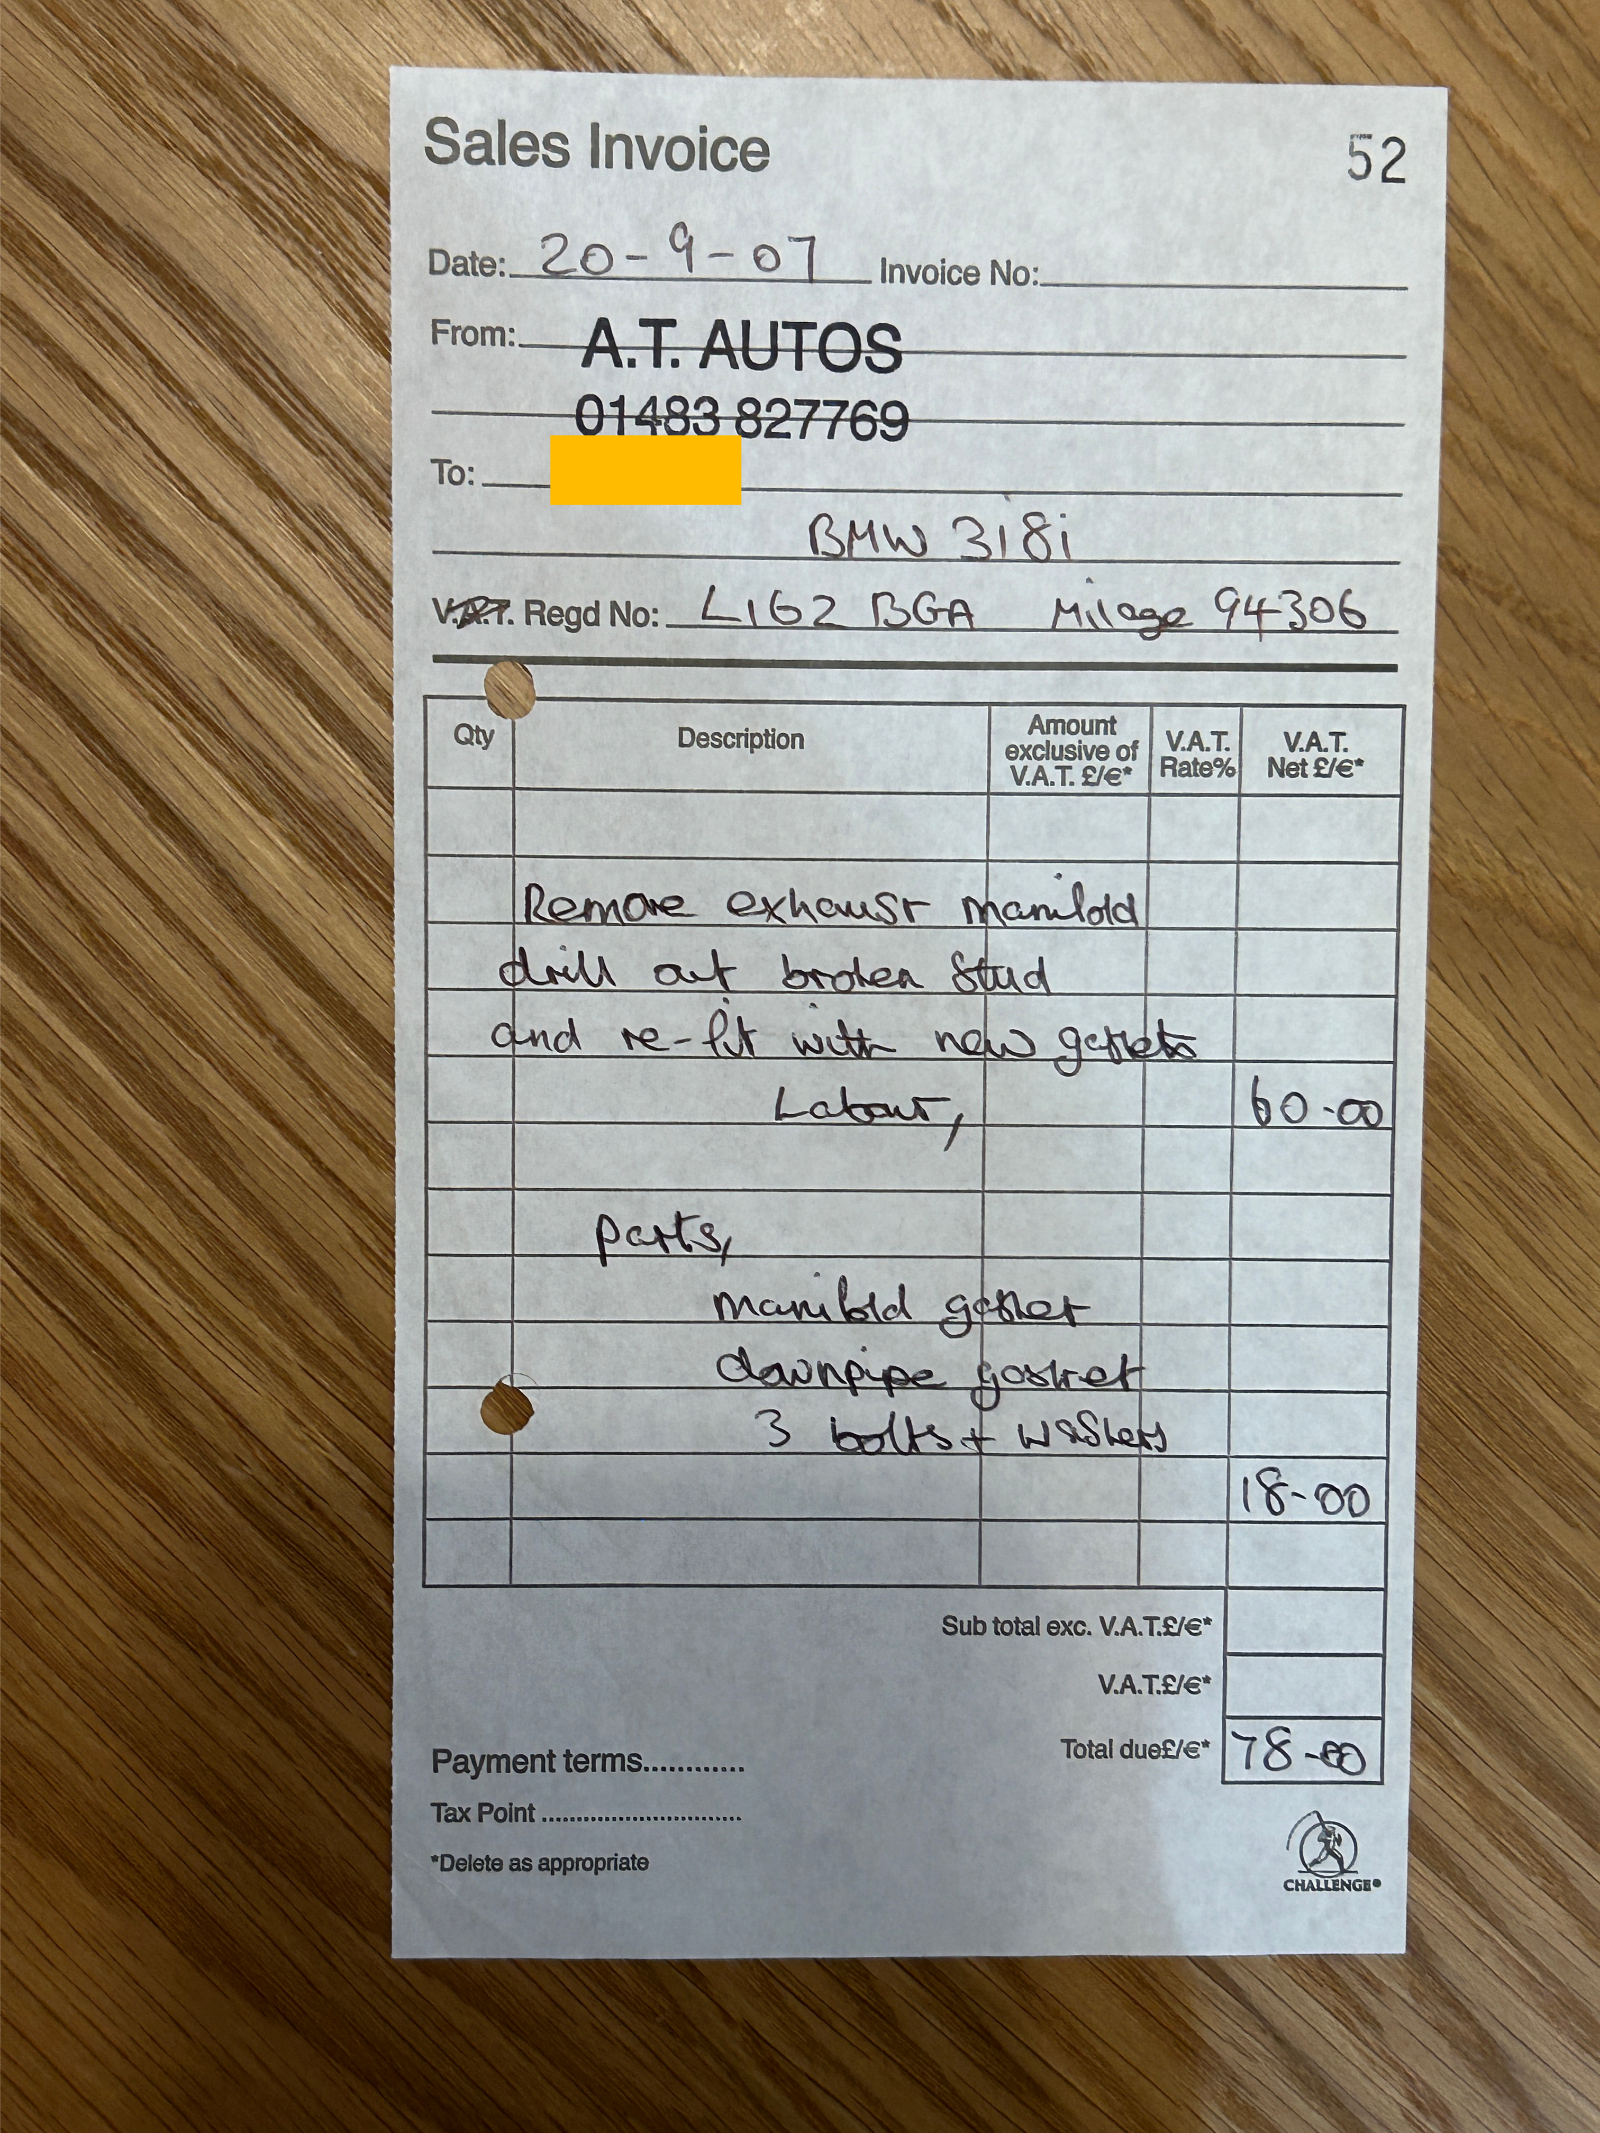 Sales Invoice 52
Date: 20-9-07 Invoice No:
From: A.T. AUTOS
01483 827769
To:
BMW 318i
V.A.T. Regd No: L162 BGA Milage 94306
Qty Description Amount exclusive of V.A.T. £/€* V.A.T. Rate% V.A.T. Net £/€*
Remove exhaust manifold
drill out broken stud
and re-fit with new gaskets
Labour, 60-00
parts,
manifold gasket
downpipe gasket
3 bolts + washers
18-00
Sub total exc. V.A.T.£/€*
V.A.T.£/€*
Total due£/€* 78-00
Payment terms............
Tax Point ..............................
*Delete as appropriate
CHALLENGE®